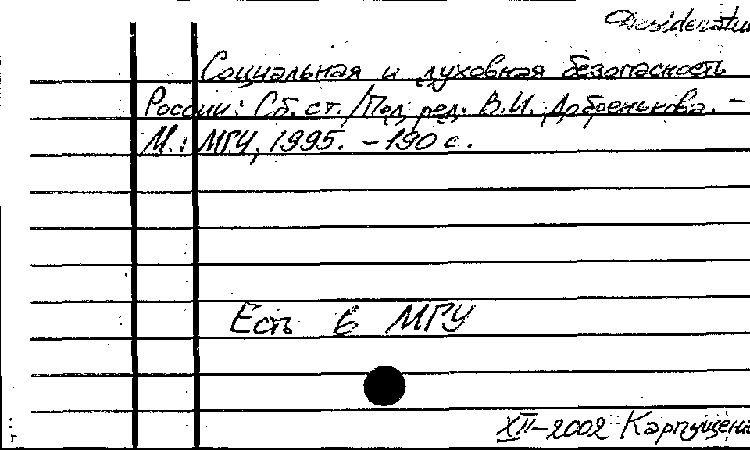 Desideratu
Социальная и духовная безопасность
России: Сб. ст. /Под ред. В.И. Добренькова. –
М.: МГУ, 1995. – 190 с.
Есть в МГУ
XII–2002 Карпущенк